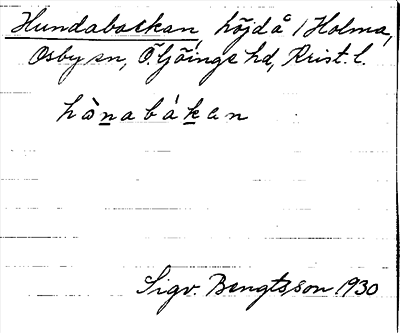 Hundabackan, höjd å 1 Holma,
Osby sn, Ö. Göinge hd, Krist. l.
hònabákan
Sigv. Bengtsson 1930